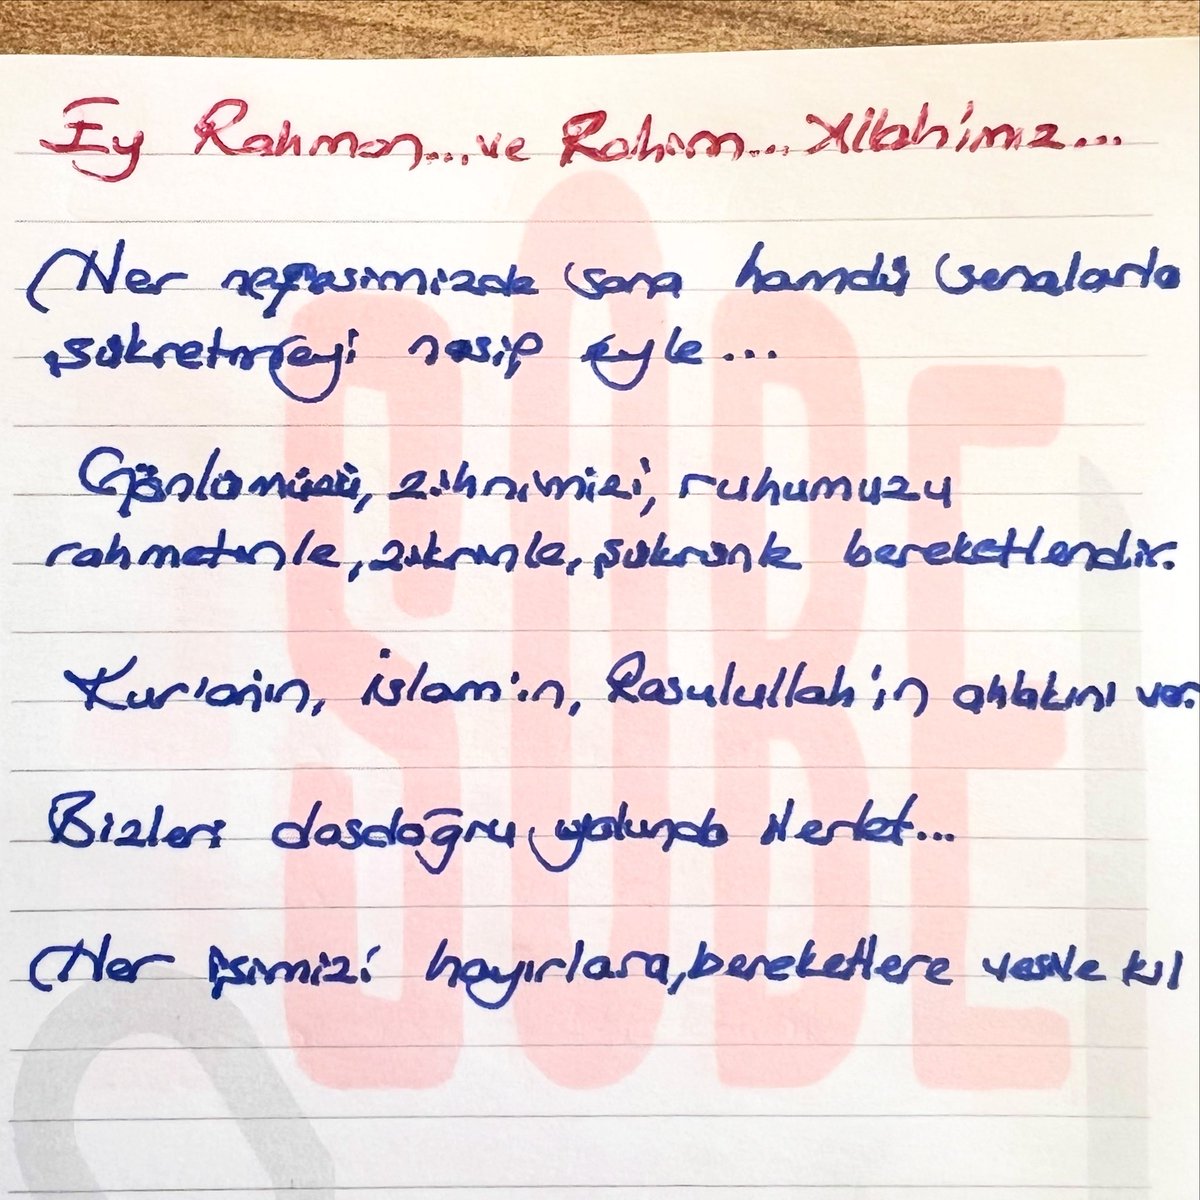 Ey Rahman...ve Rahim... Allah'ımız...
Her nefesimizde sana hamdü senalarla
şükretmeyi nasip eyle...
Gönlümüzü, zihnimizi, ruhumuzu
rahmetinle, zikrinle, şükrünle bereketlendir.
Kur'an'ın, İslam'ın, Rasulullah'ın ahlakını ver.
Bizleri dosdoğru yolunda ilerlet...
Her işimizi hayırlara, bereketlere vesile kıl
ŞUBE